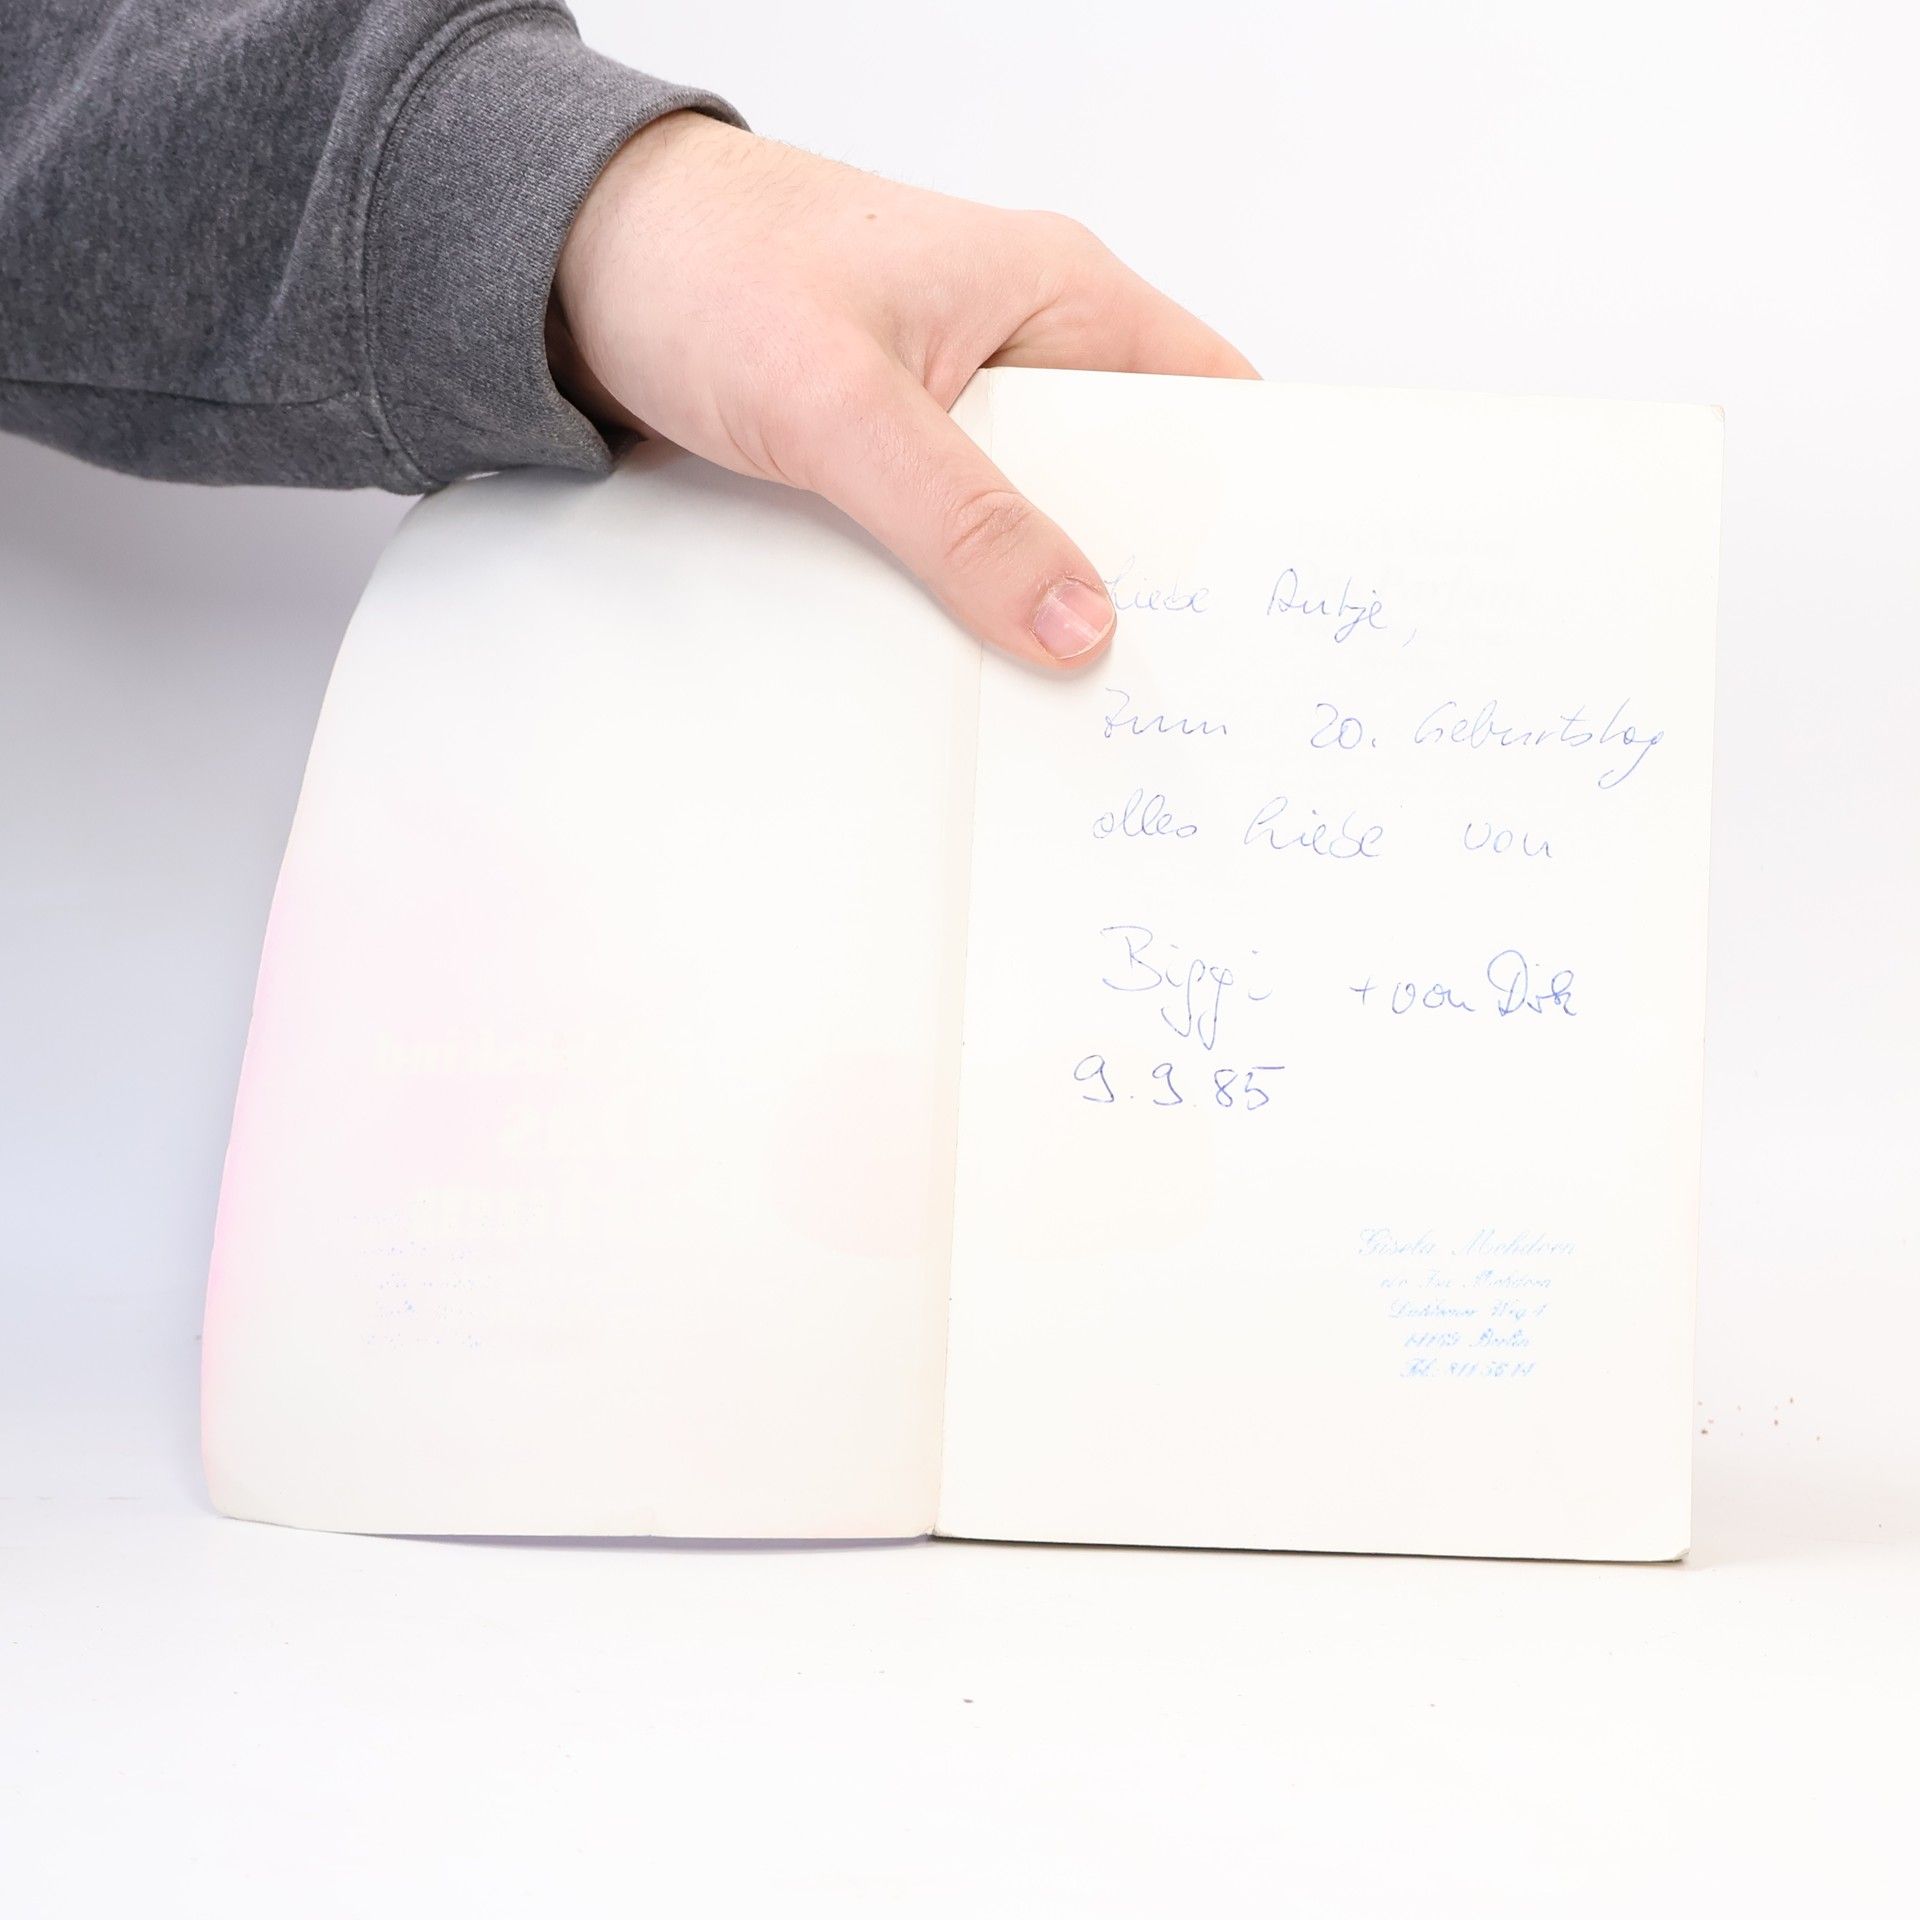 Liebe Antje,
zum 20. Geburtstag
alles Liebe von
Biggi + von Dirk
9.9.85
Gisela Mohdorn
Mohdorn
Weg 4
Berlin
Tel.: